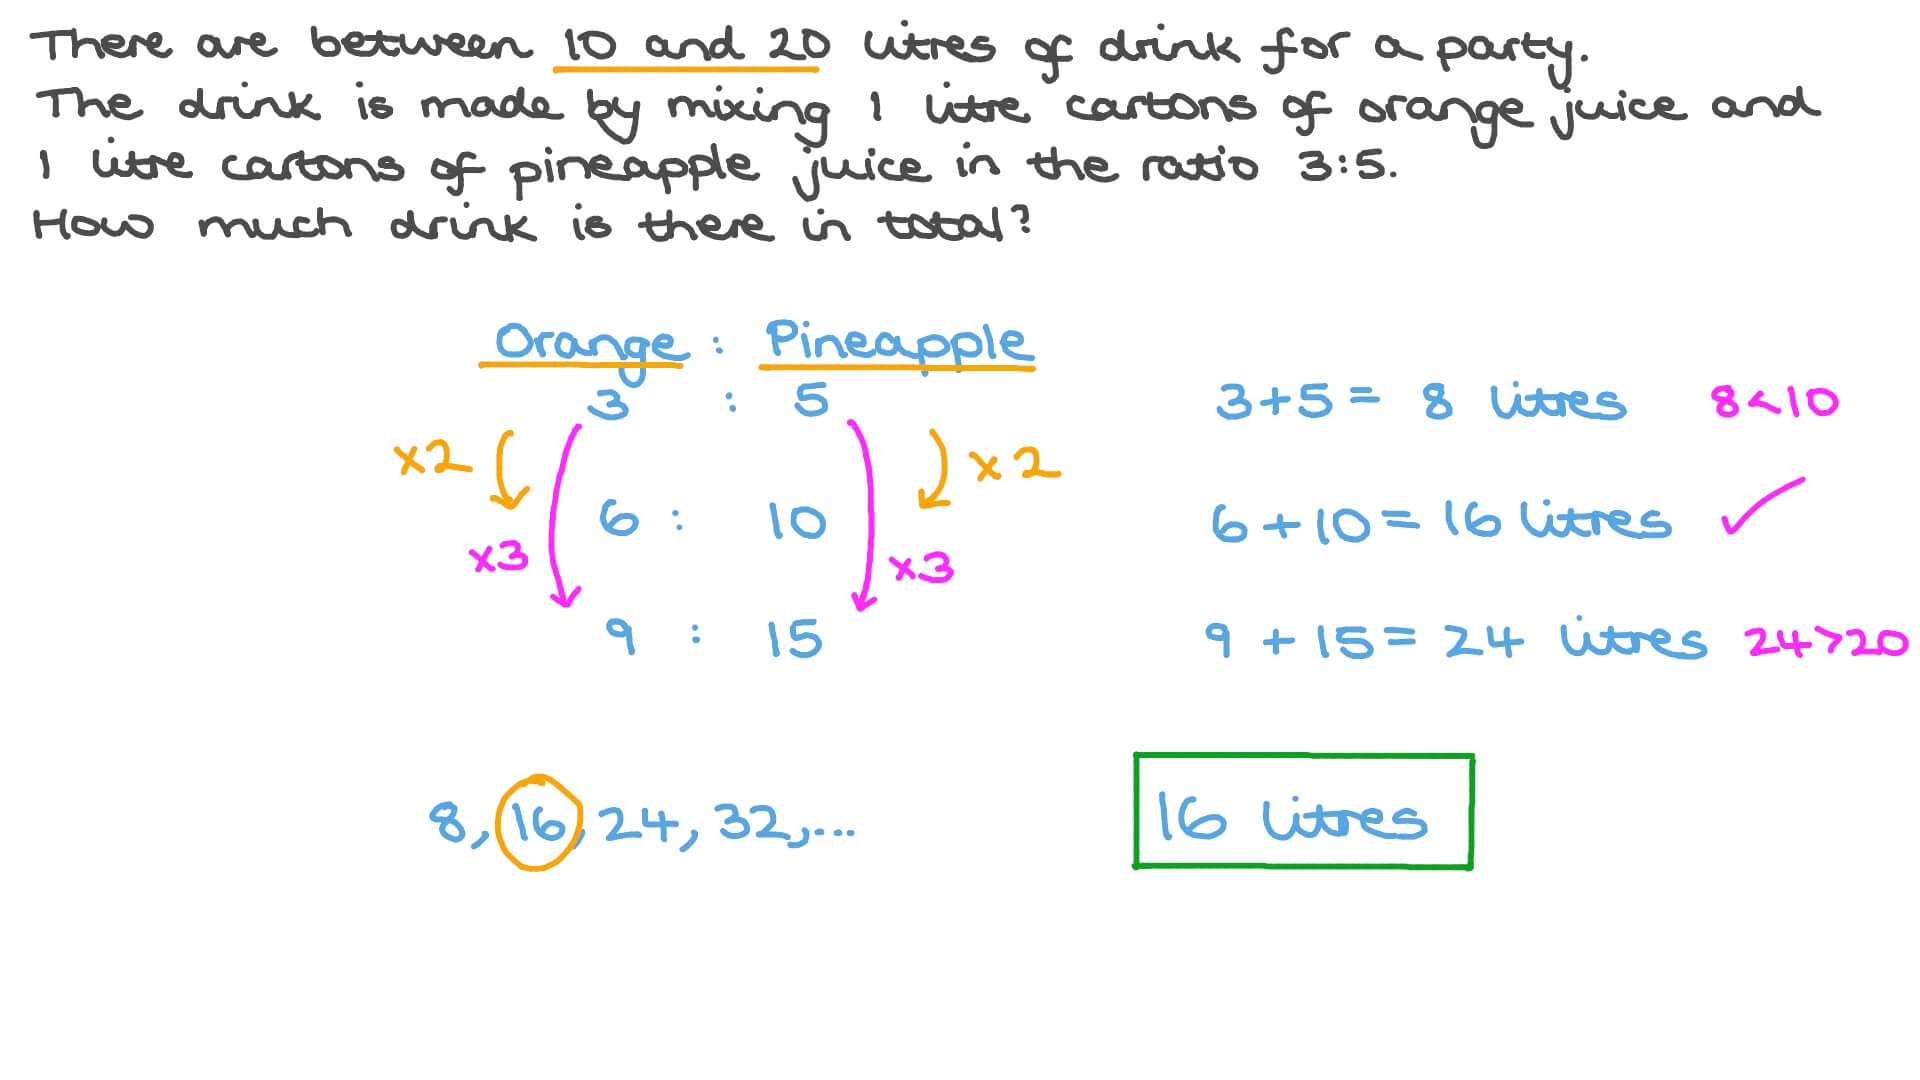 There are between 10 and 20 litres of drink for a party.
The drink is made by mixing 1 litre cartons of orange juice and
1 litre cartons of pineapple juice in the ratio 3:5.
How much drink is there in total?
Orange : Pineapple
3 : 5
3+5 = 8 litres 8<10
x2 x2
6 : 10
6 + 10 = 16 litres ✓
x3 x3
9 : 15
9 + 15 = 24 litres 24>20
8, 16, 24, 32, ...
16 litres